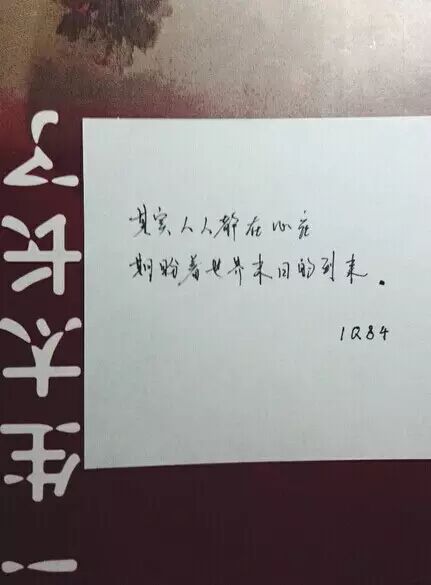 其实人人都在心底
期盼着世界末日的到来.
1Q84
一生太长了